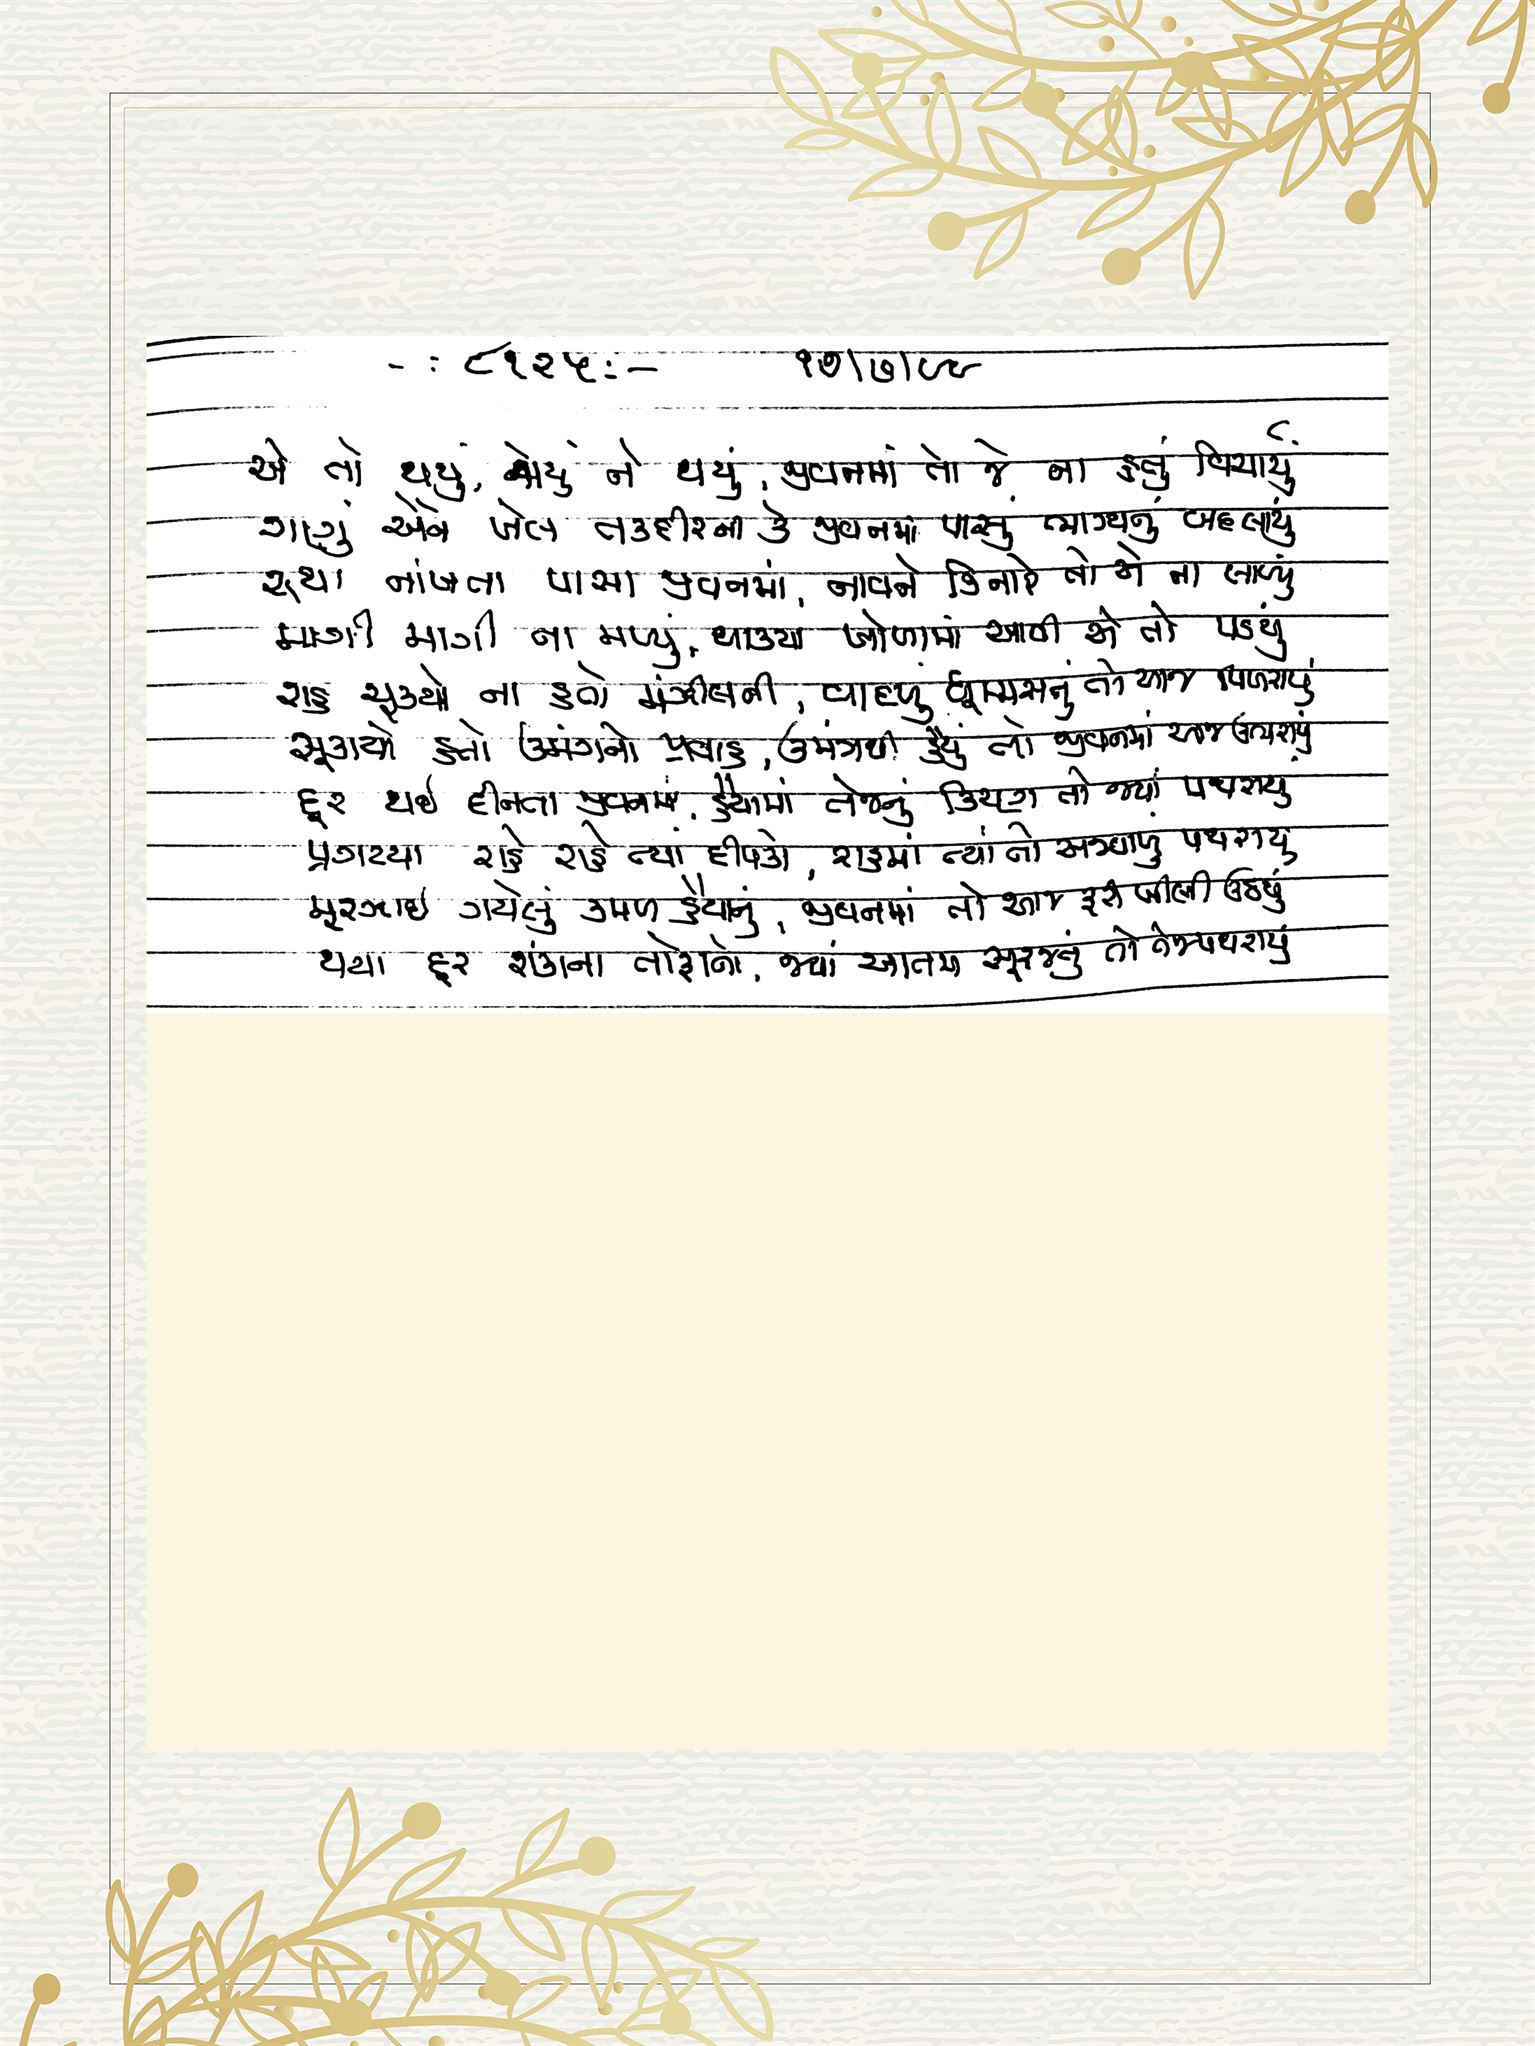 -: ૮૧૨૫:- ૧૭/૭/૯૯
એ તો થયું, થયું ને થયું, જીવનમાં તો જે ના હતું વિચાર્યું
ગણું એને ખેલ તકદીરના કે જીવનમાં પાસું ભાગ્યનું બદલાયું
રહ્યા નાંખતા પાસા જીવનમાં, નાવને કિનારે તો એ ના લાવ્યું
માગી માગી ના મળ્યું, થાક્યા ખોળામાં આવી એ તો પડયું
રાહ સૂઝયો ના હતો મંઝીલની, વાદળું ધૂમ્મસનું તો આજ વિખરાયું
સૂકાયો હતો ઉમંગનો પ્રવાહ, ઉમંગથી હૈયું તો જીવનમાં આજ ઉભરાયું
દૂર થઈ દીનતા જીવનમાં, હૈયામાં તેજનું કિરણ તો જ્યાં પથરાયું
પ્રગટયા રાહે રાહે ત્યાં દીપકો, રાહમાં ત્યાં તો અજવાળું પથરાયું
મૂરઝાઈ ગયેલું કમળ હૈયાનું, જીવનમાં તો આજ ફરી ખીલી ઉઠયું
થયા દૂર શંકાના તોફાનો, જ્યાં આતમ સૂરજનું તો તેજ પથરાયું